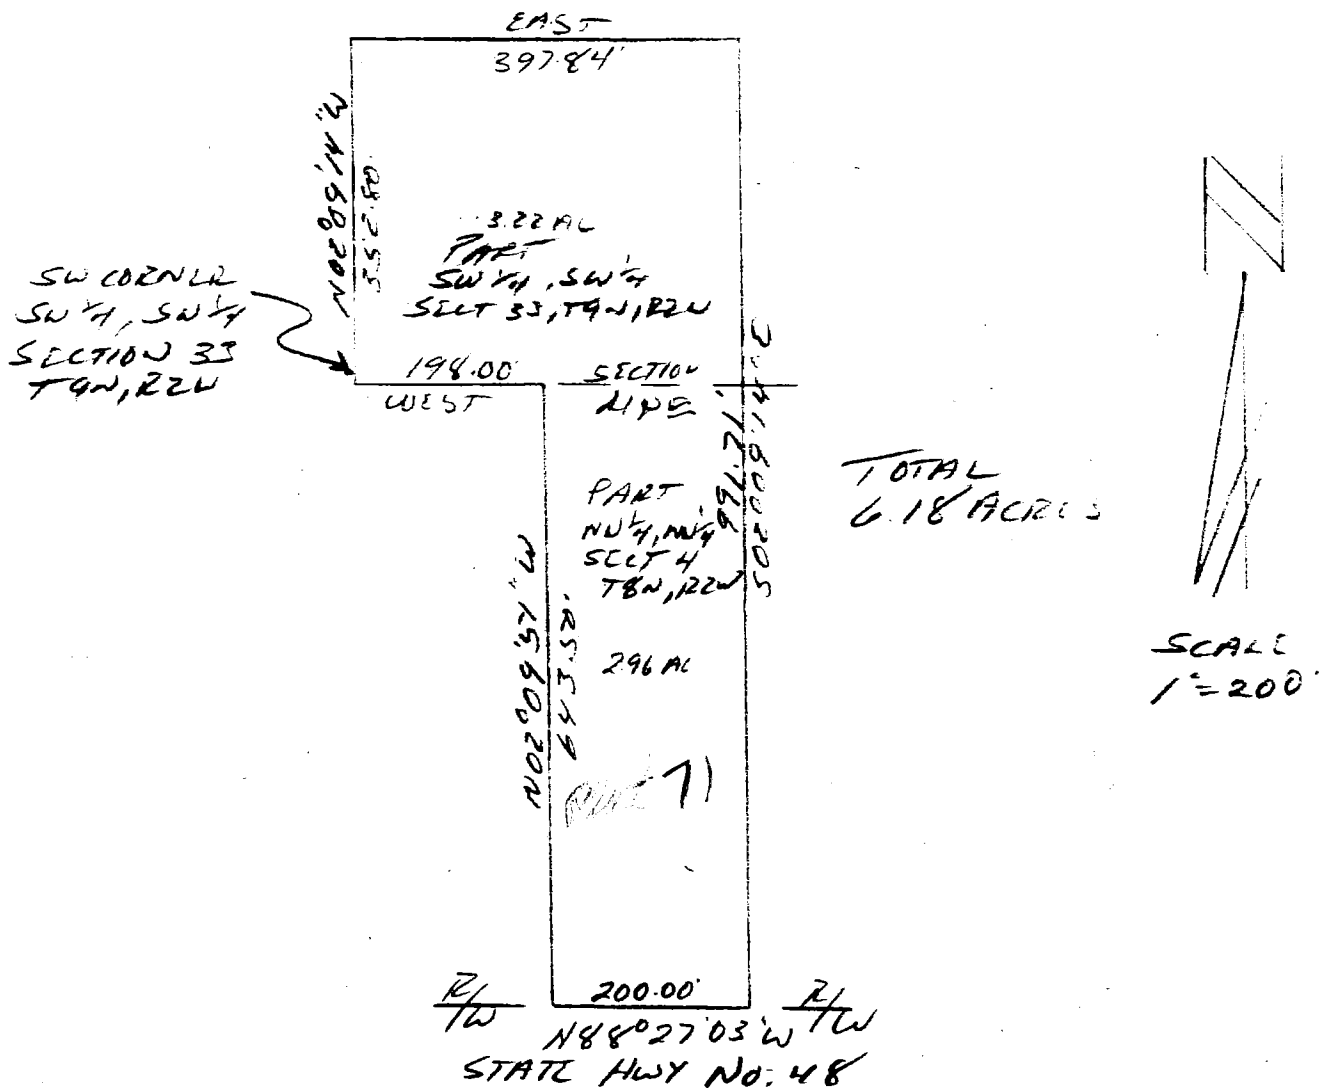 EAST
397.84'
N02°09'14"W
352.80
3.22 AC
PART
SW 1/4, SW 1/4
SECT 33, T9N, R2W
SW CORNER
SW 1/4, SW 1/4
SECTION 33
T9N, R2W
198.00'
WEST
SECTION
LINE
S02°09'14"E
991.71'
PART
NW 1/4, NW 1/4
SECT 4
T8N, R2W
2.96 AC
N02°09'57"W
643.50'
TOTAL
6.18 ACRES
N
SCALE
1"=200'
R/W
200.00'
R/W
N88°27'03"W
STATE HWY NO. 48